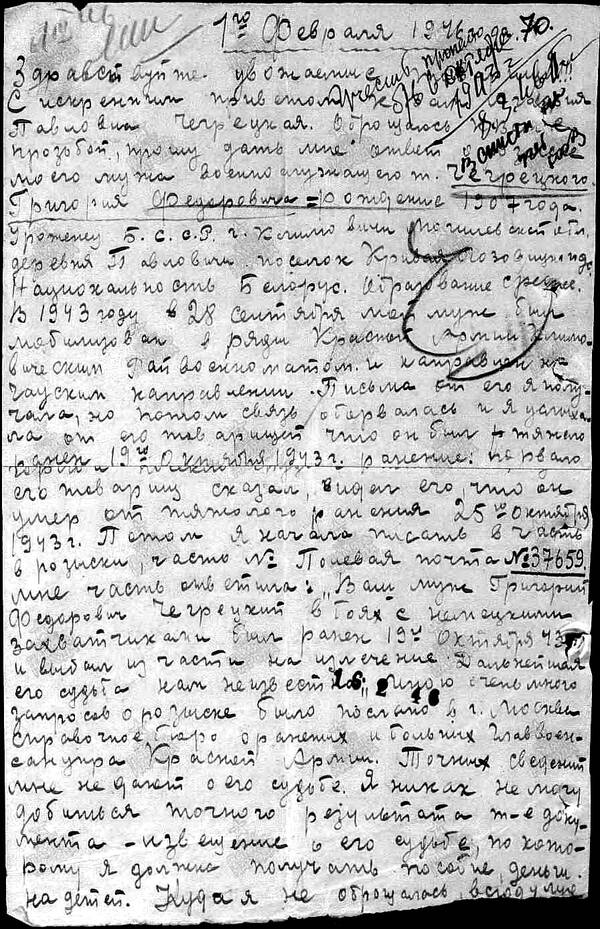 1го Февраля 1946 70.
Здравствуйте уважаемые
С искренним приветом к Вам
Павловна Чегрецкая. Обращаюсь
прозьбой, прошу дать мне ответ
моего мужа военнослужащего т. Чегрецкого
Григория Федоровича = рождение 1907 года.
Уроженец Б.С.С.Р. г. Климовичи Могилевской обл.
деревня Павловичи поселок Кривая
Национальность Белорус. Образование среднее.
В 1943 году в 28 сентября мой муж был
мобилизован в ряды Красной Армии Климо-
вическим Райвоенкоматом и направлен на
Чауским направлении. Письма от его я полу-
чала, но потом связь оборвалась и я услыха-
ла от его товарищей что он был тяжело
ранен 19го Октября 1943 г. ранение:
его товарищ сказал, видел его, что он
умер от тяжолого ранения 25го Октября
1943 г. Потом я начала писать в часть
в розыски, часть № Полевая почта №37659.
мне часть ответила: „Ваш муж Григорий
Федорович Чегрецкий в боях с немецкими
захватчиками был ранен 19го Октября 43 г.
и выбыл из части на излечение. Дальнейшая
его судьба нам неизвестна". Мною очень много
16 2 46
запросов о розыске было послано в г. Москва
справочное бюро о раненых и больных Главвоен-
санупра Красной Армии. Точних сведений
мне не дают о его судьбе. Я никак не могу
добиться точного результата т-е доку-
мента - извещение о его судьбе, по кото-
рому я должна получать пособие, деньги.
на детей. Куда я не оброщалась, всюду мне